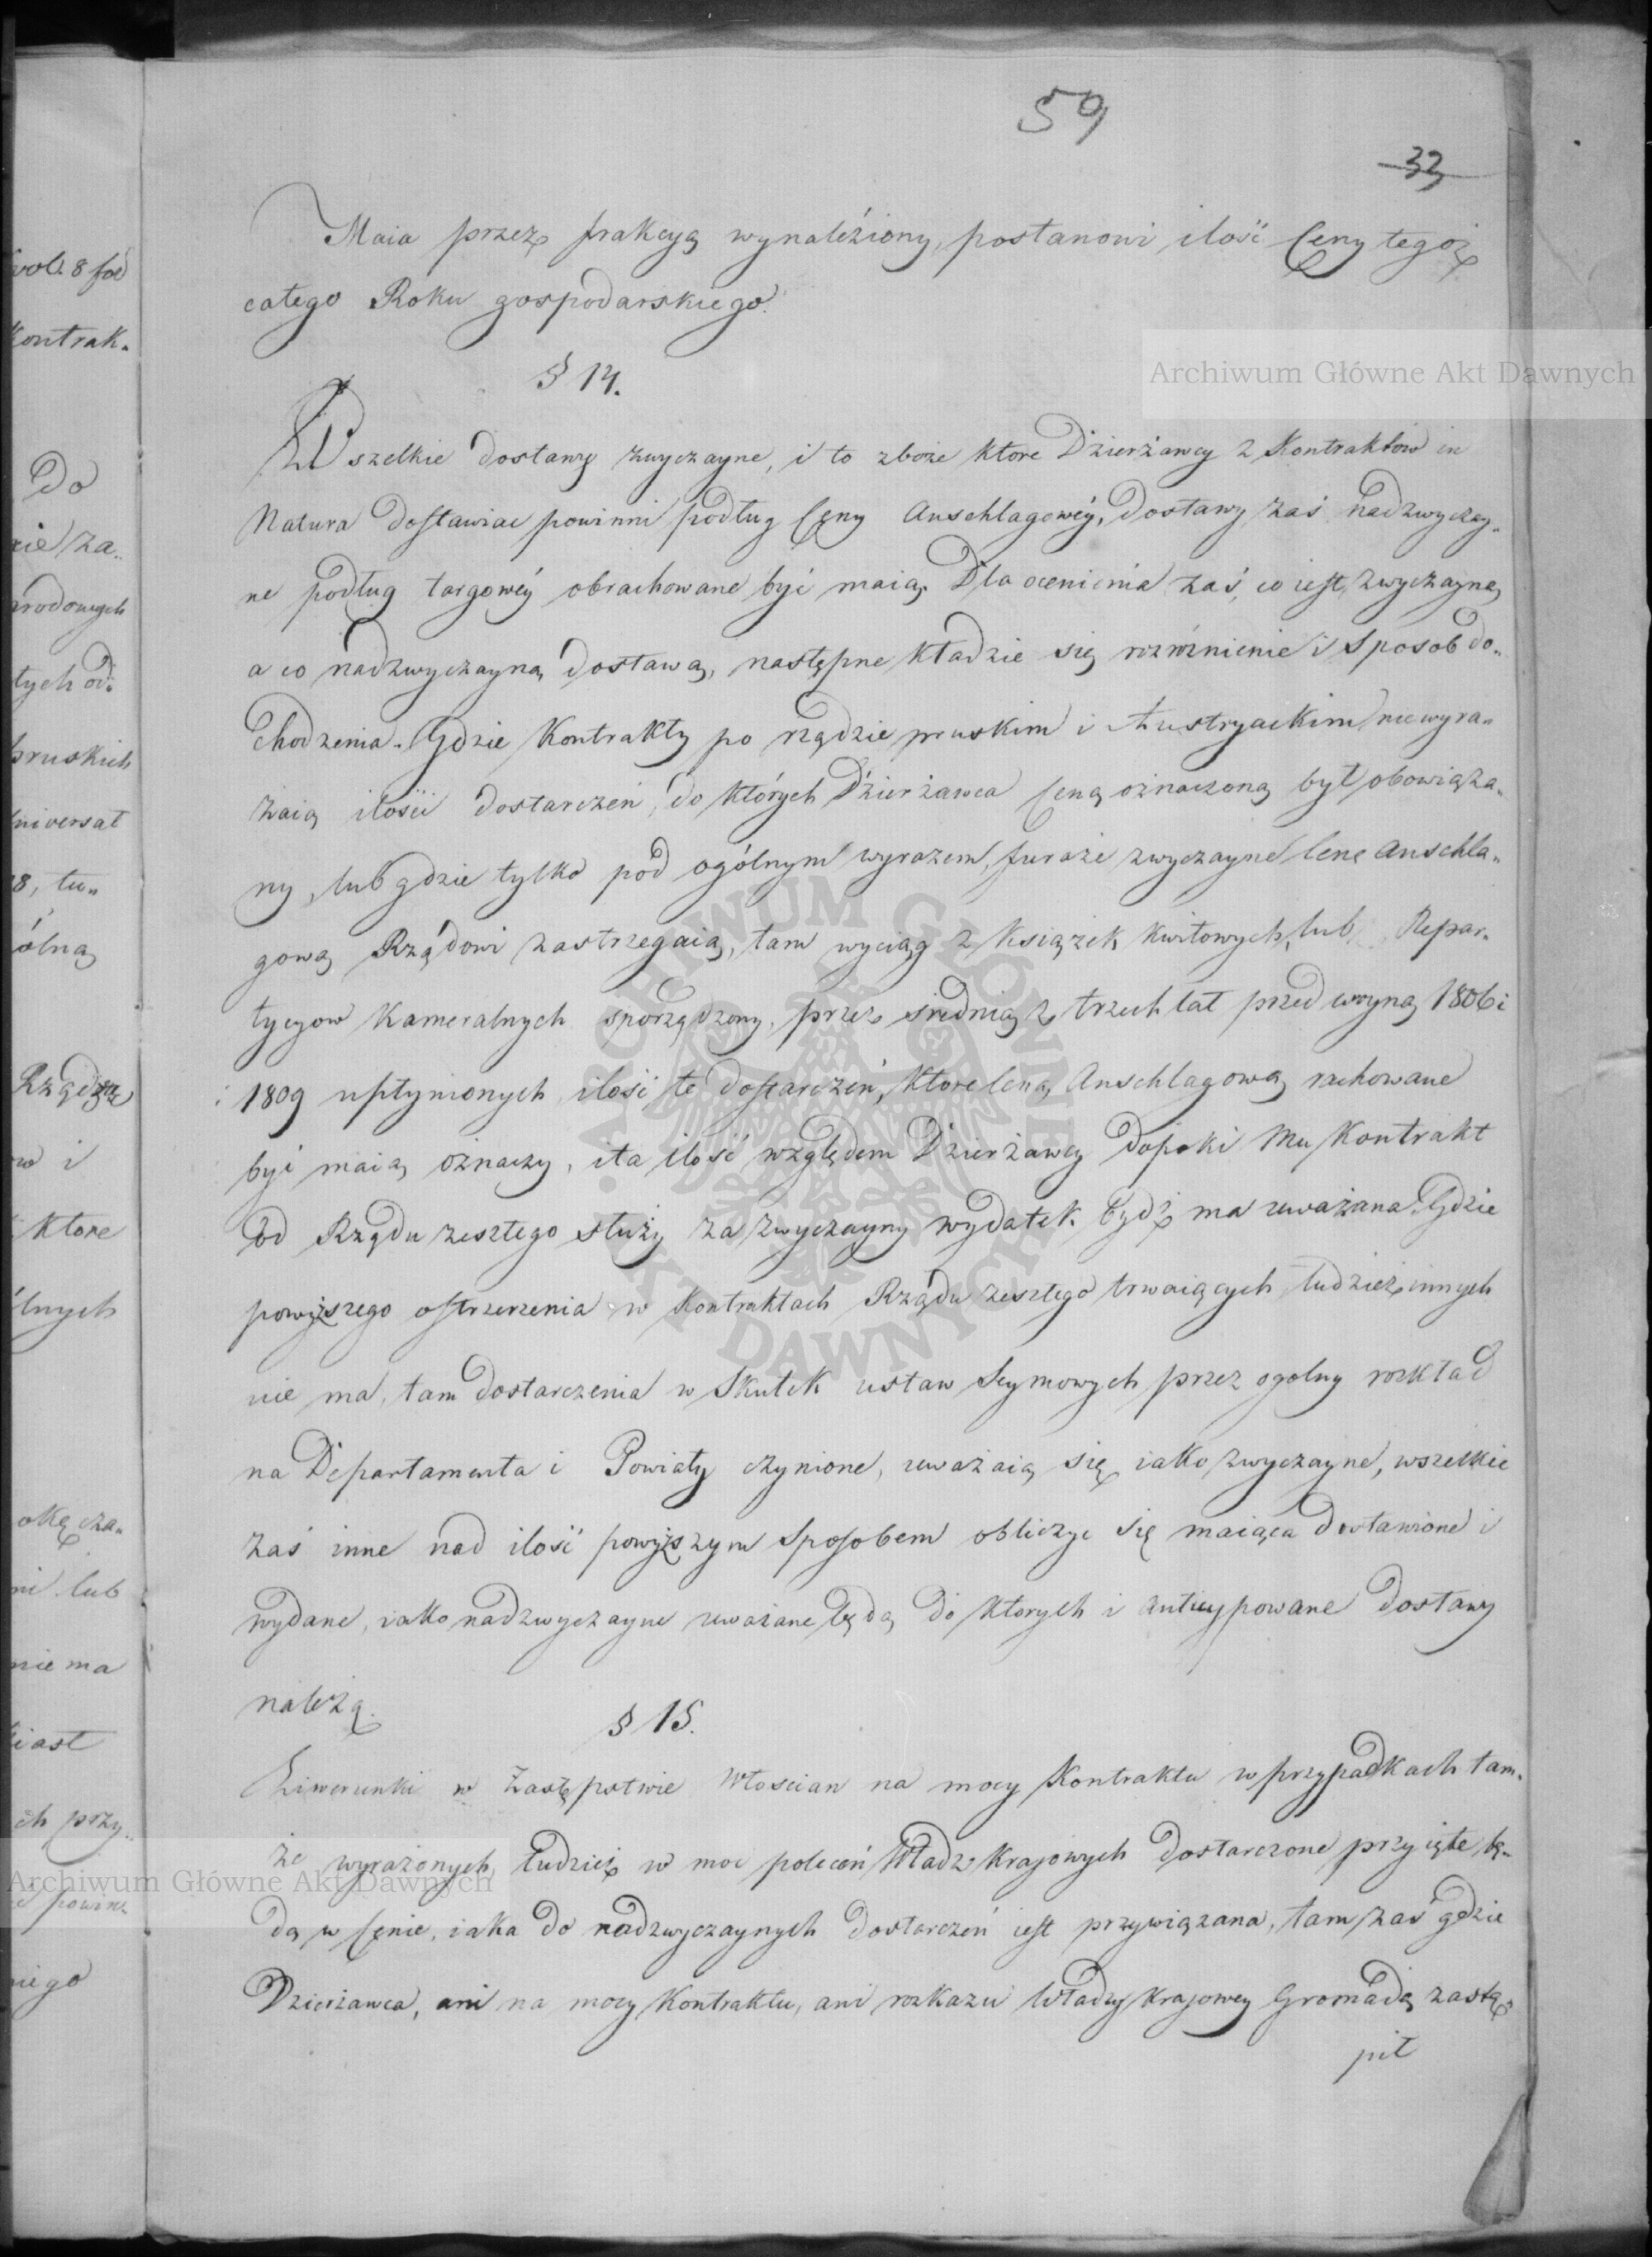 59
33
Maia przez frakcyą wynaleźiony, postanowi ilość Ceny tegoż
całego Roku gospodarskiego.
§ 14.
Wszelkie dostawy zwyczayne, i to zboże ktore Dzierżawcy z Kontraktów in
Natura dostawiac powinni podług Ceny Anschlagowéy, Dostawy zaś nadzwyczay„
ne podług targowéy obrachowane być maią. Dla ocenienia zaś, co iest zwyczayną,
a co nadzwyczayną dostawą, następne kładzie się rozróżnienie i Sposob do„
chodzenia. Gdzie Kontrakty po rządzie pruskim i Austryackim nie wyra„
żaią ilości dostarczeń, do których Dzierżawca Ceną oznaczoną był obowiąza„
ny, lub gdzie tylko pod ogólnym wyrazem, furaże zwyczayne Cenę Anschla„
gową Rządowi zastrzegaią, tam wyciąg z Książek kwitowych, lub Repar„
tycyow Kameralnych sporządzony, przez średnią z trzech lat przed woyną 1806 i
1809 upłynionych ilość te dostarczeń, ktore Ceną Anschlagową rachowane
być maią oznaczy, i ta ilość względem Dzierżawcy dopoki Mu Kontrakt
od Rządu zeszłego służy za zwyczayny wydatek bydź ma uważana. Gdzie
powyższego ostrzeżenia w Kontraktach Rządu zeszłego trwaiących tudzież innych
nie ma, tam dostarczenia w Skutek ustaw Seymowych przez ogolny rozkład
na Departamenta i Powiaty czynione, uważaią się iako zwyczayne, wszelkie
zaś inne nad ilość powyższym Sposobem obliczyc się maiąca dostawione i
wydane, iako nadzwyczayne uważane będą, do ktorych i anticypowane dostawy
należą.
§ 15.
Liwerunki w Zastępstwie Włoscian na mocy Kontraktu w przypadkach tam„
że wyrażonych, tudzież w moc poleceń Władz Krajowych dostarczone przyięte bę„
dą w Cenie, iaka do nadzwyczaynych dostarczeń iest przywiązana, tam zaś gdzie
Dzierżawca, ani na mocy Kontraktu, ani rozkazu Władzy Krajowey Gromadę zastą„
pił
vol. 8 fol
Kontrak„
Do
nie za„
arodowych
tych od„
pruskich
niwersał
8, tu„
ólną
Rządzą
w i
ktore
lnych
ni lub
nie ma
iast
ch przy„
powin„
niego
Archiwum Główne Akt Dawnych
Archiwum Główne Akt Dawnych
ARCHIWUM GŁÓWNE AKT DAWNYCH